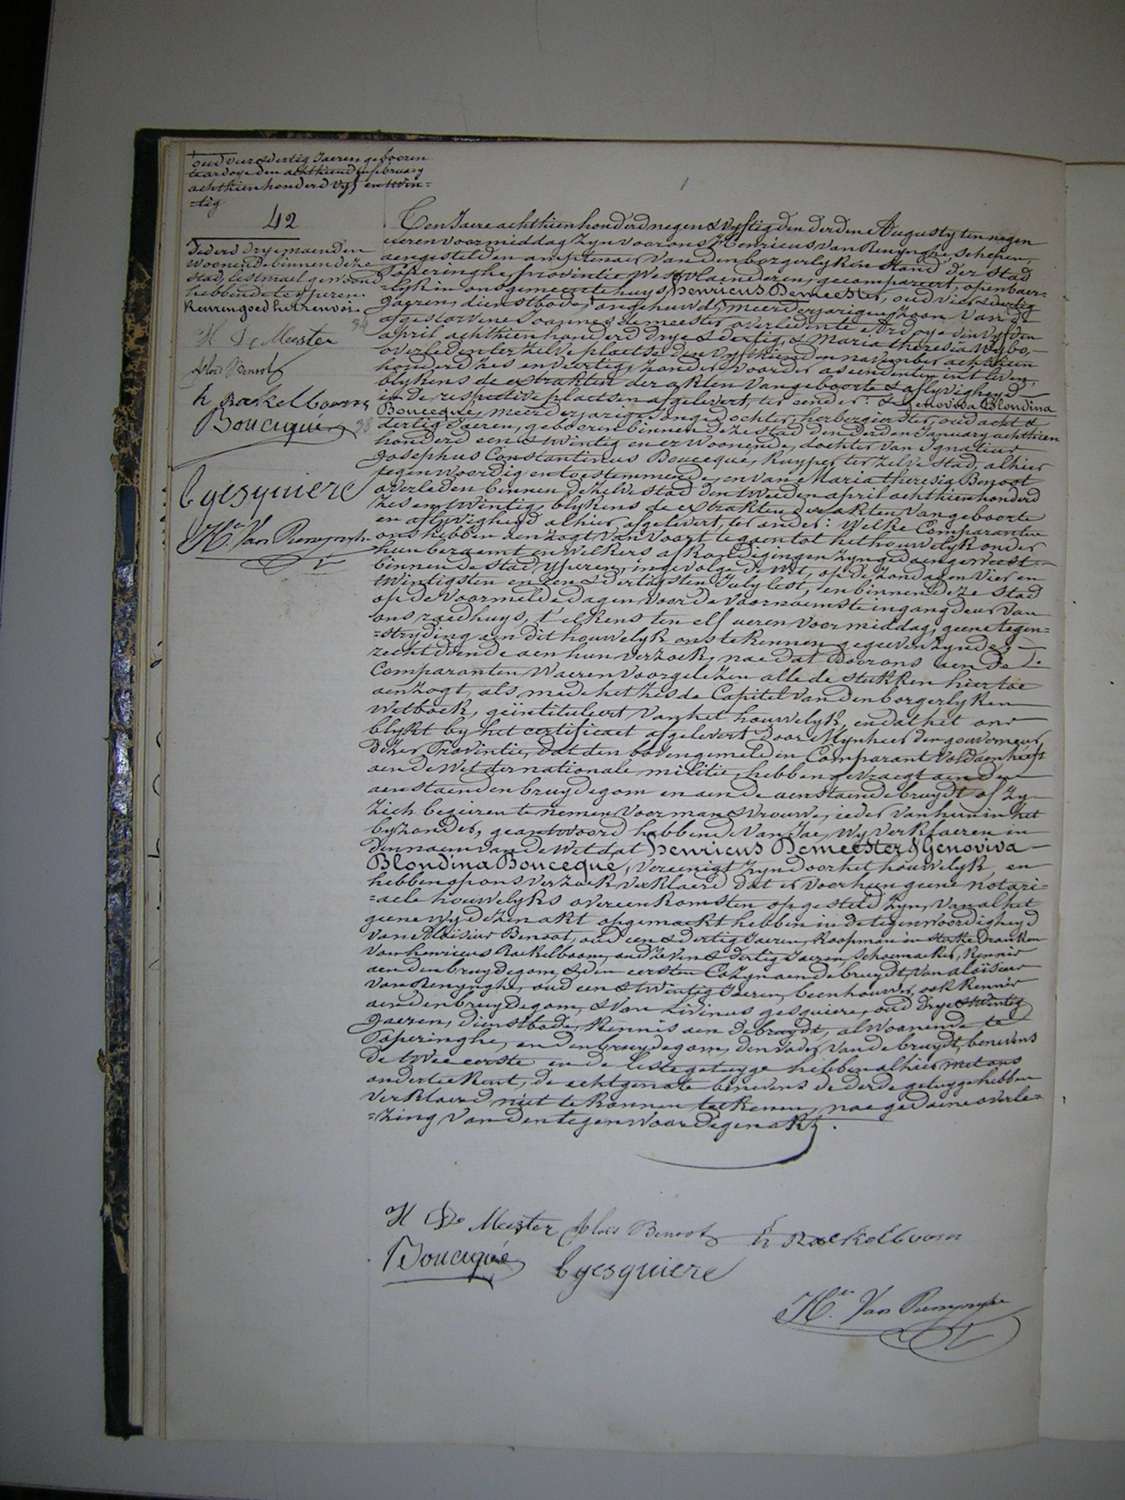 oud vier & dertig Jaeren geboren
tardoye den achthiende february
achthien honderd vyf en twin=
=tig
42
dederd drymaenden
woonende binnen deze
stad, lestmael gewoond
hebbende te yperen.
Keuringoed herkenver.
H De Meester
Alois Benoot
h Raekelboom
Bouciqué
L gesquiere
He. Van Renynghe
Ten Jaere achthien honderd negen & vyftig den derden Augusty ten negen
ueren voormiddag zyn voor ons Henricus Van Renynghe, schepen,
aengestelden amptenaer van den borgerlyken stand der stad
Poperinghe, provintie Westvlaenderen, gecompareert, openbaer=
=lyk in ons gemeente huys, Henricus Demeester, oud vier & dertig
Jaeren, dienstbode, ongehuwd, meerderjarigen zoon van de
afgestorvene Joannes Demeester, overleden te Ardoye den vyfden
april achthien honderd drye & dertig, & Maria Theresia Wybo,
overleden ter zelve plaetse den vyfthienden november achthien
honderd zes en veertig, zonder voorder ascendenten in leven,
blykens de extrakten der akten van geboorte & aflyvigheyd
in de respective plaetsen afgelevert, ter eender: & Genoviva Blondina
Boucequé, meerderjarige jonge dochter, herbergierster, oud acht &
dertig Jaeren, geboren binnen deze stad den derden January achthien
honderd een & twintig en er woonende, dochter van Ignatius
Josephus Constantinus Boucequé, Kuyper ter zelve stad, alhier
tegenwoordig en toestemmende, en van Maria Theresia Benoot
overleden binnen dezelve stad den tweeden april achthien honderd
zes en twintig, blykens de extrakten der akten van geboorte
en aflyvigheyd alhier afgelevert, ter ander: Welke Comparanten
ons hebben aenzogt van voort te gaen tot het houwelyk onder
hun beraemt en welkers afkondigingen zyn gedaen geweest
binnen de stad yperen, ingevolge de wet, op de zondagen vier en
twintigsten en een & dertigsten July lest, en binnen deze stad
op de voormelde dagen voor de voornaemste ingangdeur van
ons raedhuys, t'elkens ten elf ueren voormiddag; geene tegen=
=stryding aen dit houwelyk ons te kennen gegeven zynde,
recht doende aen hun verzoek, nae dat door ons aen de
Comparanten waeren voorgelezen alle de stukken hier toe
aenzogt, als mede het zesde Capitel van den borgerlyken
Wetboek, geintituleert van het houwelyk, en dat het ons
blykt by het certificaet afgelevert door Mynheer den gouverneur
dezer Provintie, dat den bovengemelden Comparant voldaen heeft
aen de Wet der nationale militie, hebben gevraegt aen den
aenstaenden bruydegom en aen de aenstaende bruydt of zy
zich begeiren te nemen voor man & vrouwe; ieder van hun in het
byzonder, geantwoord hebbende van Jae, Wy verklaeren in
den naem van de Wet dat Henricus Demeester & Genoviva
Blondina Boucequé, vereenigt zyn door het houwelyk, en
hebben op ons verzoek verklaerd dat er voor hun geene notari=
=aele houwelyks overeenkomsten opgesteld zyn, van al het
geene wy dezen akt opgemaekt hebben in de tegenwoordigheyd
van Aloisius Benoot, oud een & dertig Jaeren, Koopman in sterke dranken
van henricus Raekelboom, oud zeven & dertig Jaeren, schoenmaeker, Kennis
aen den bruydegom, & den eersten Cozyn aen de bruydt, van aloïsius
van Renynghe, oud een & twintig Jaeren, beenhouwer, ook Kennis
aen den bruydegom, & van Livinus gesquiere, oud drye & twintig
Jaeren, dienstbode, Kennis aen de bruydt, al woonende te
Poperinghe, en den bruydegom, den vader van de bruydt, benevens
de twee eerste en de leste getuyge hebben alhier met ons
onderteekent, de echtgenote benevens de derde getuyge hebben
verklaerd niet te konnen teekenen, nae gedaene overle=
=zing van den tegenwoordigen akt.
H De Meester Alois Benoot h Raekelboom
Bouciqué L gesquiere
He. Van Renynghe